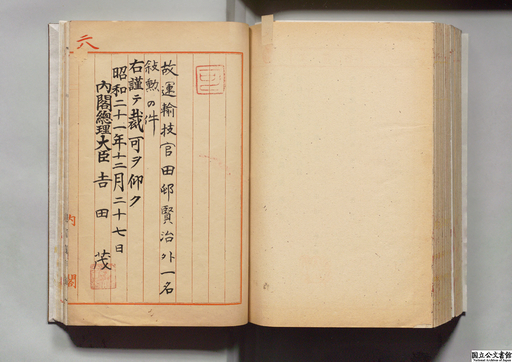 六
故運輸技官田邨賢治外一名
敍勲の件
右謹テ裁可ヲ仰ク
昭和二十一年十二月二十七日
內閣總理大臣 吉田 茂
內閣
国立公文書館
National Archives of Japan